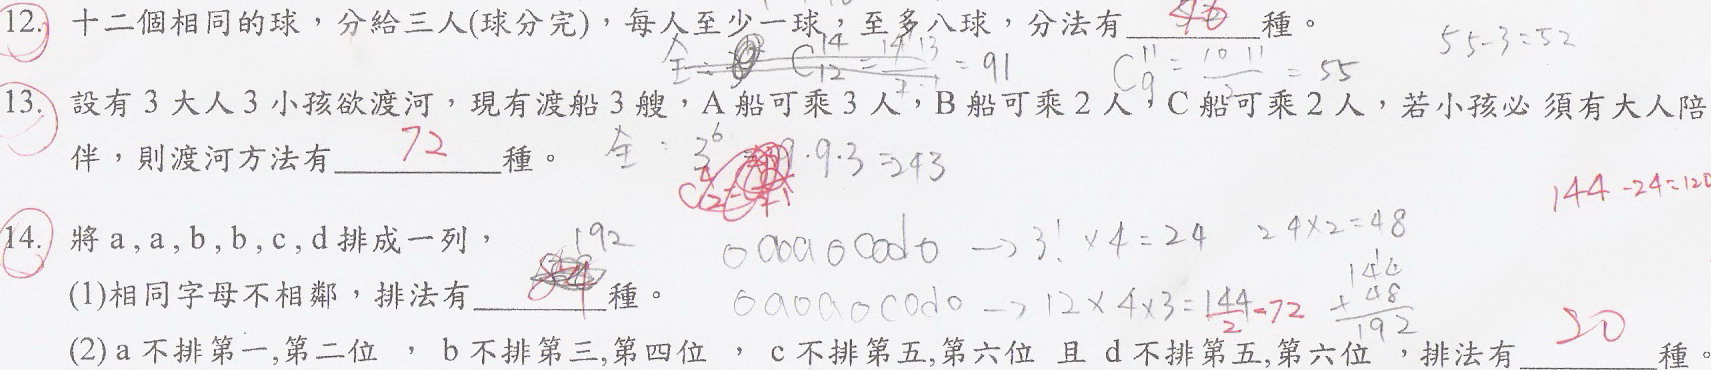 12. 十二個相同的球，分給三人(球分完)，每人至少一球，至多八球，分法有 46 種。 55-3=52
全: C 14 12 = 14 13 / 2 1 = 91 C 11 9 = 10 11 / 2 = 55
13. 設有 3 大人 3 小孩欲渡河，現有渡船 3 艘，A 船可乘 3 人，B 船可乘 2 人，C 船可乘 2 人，若小孩必 須有大人陪
伴，則渡河方法有 72 種。 全: 3^6 9·9·3 =243
144-24=120
14. 將 a , a , b , b , c , d 排成一列， 192 o a o a o c o d o → 3! × 4 = 24 24×2=48
(1)相同字母不相鄰，排法有 84 種。 o a o a o c o d o → 12 × 4 × 3 = 144/2 =72 144 + 48 192
(2) a 不排第一,第二位 ， b 不排第三,第四位 ， c 不排第五,第六位 且 d 不排第五,第六位 ，排法有 20 種。